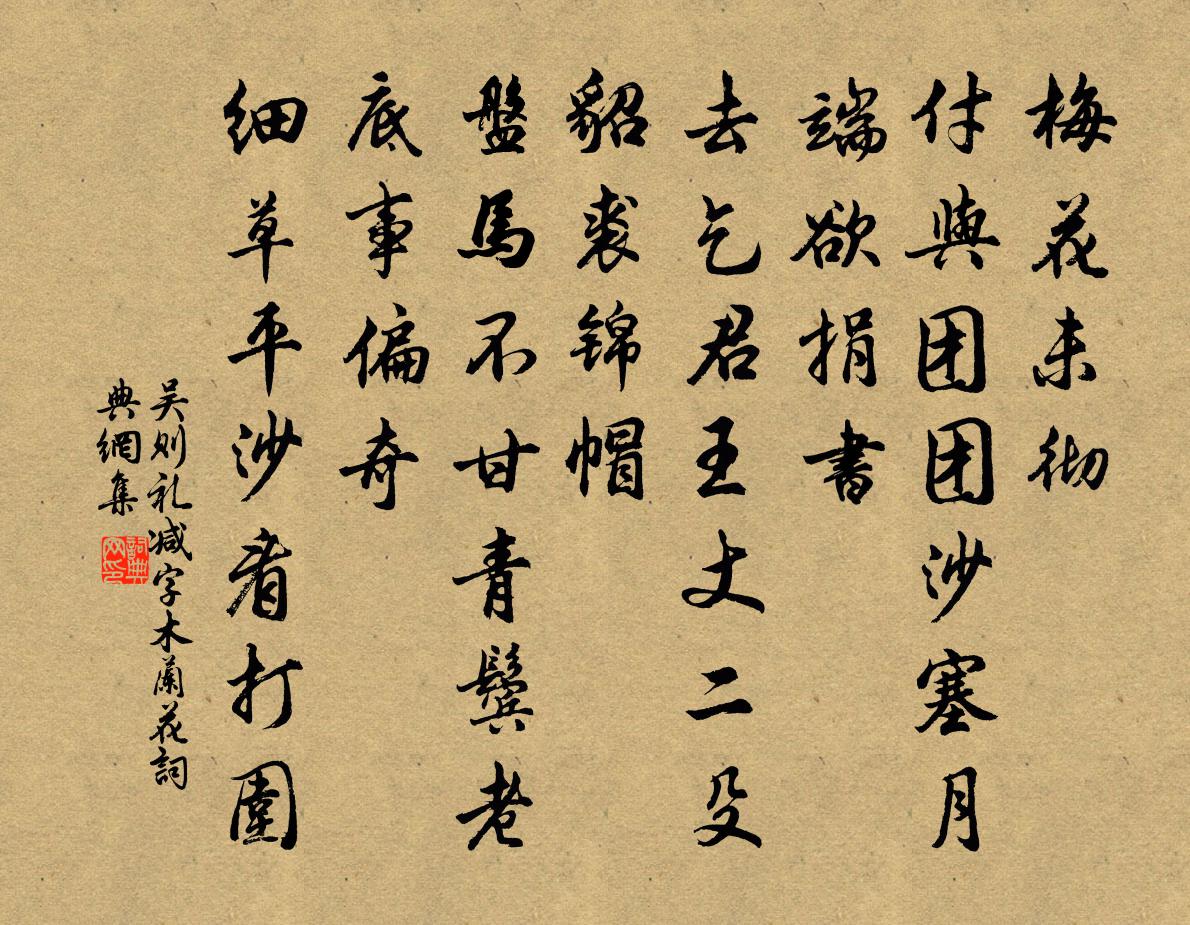 梅花未彻
付與团团沙塞月
端欲捐書
去乞君王丈二殳
貂裘锦帽
盤馬不甘青鬓老
底事偏奇
细草平沙看打圍
吴则礼减字木蘭花詞
典網集
詞典网印